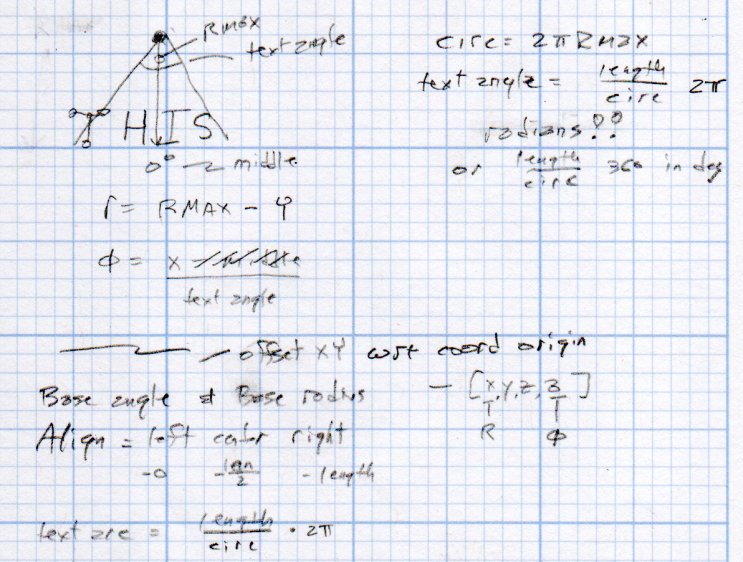 RMAX
text angle
HIS
0° middle
circ = 2πRMAX
text angle = length/circ 2π
radians??
or length/circ 360 in deg
r = RMAX - Y
φ = x / text angle
offset XY wrt coord origin
Base angle & Base radius
- [x, y, z, 3]
R φ
Align = left center right
-0 -len/2 -length
text arc = length/circ · 2π